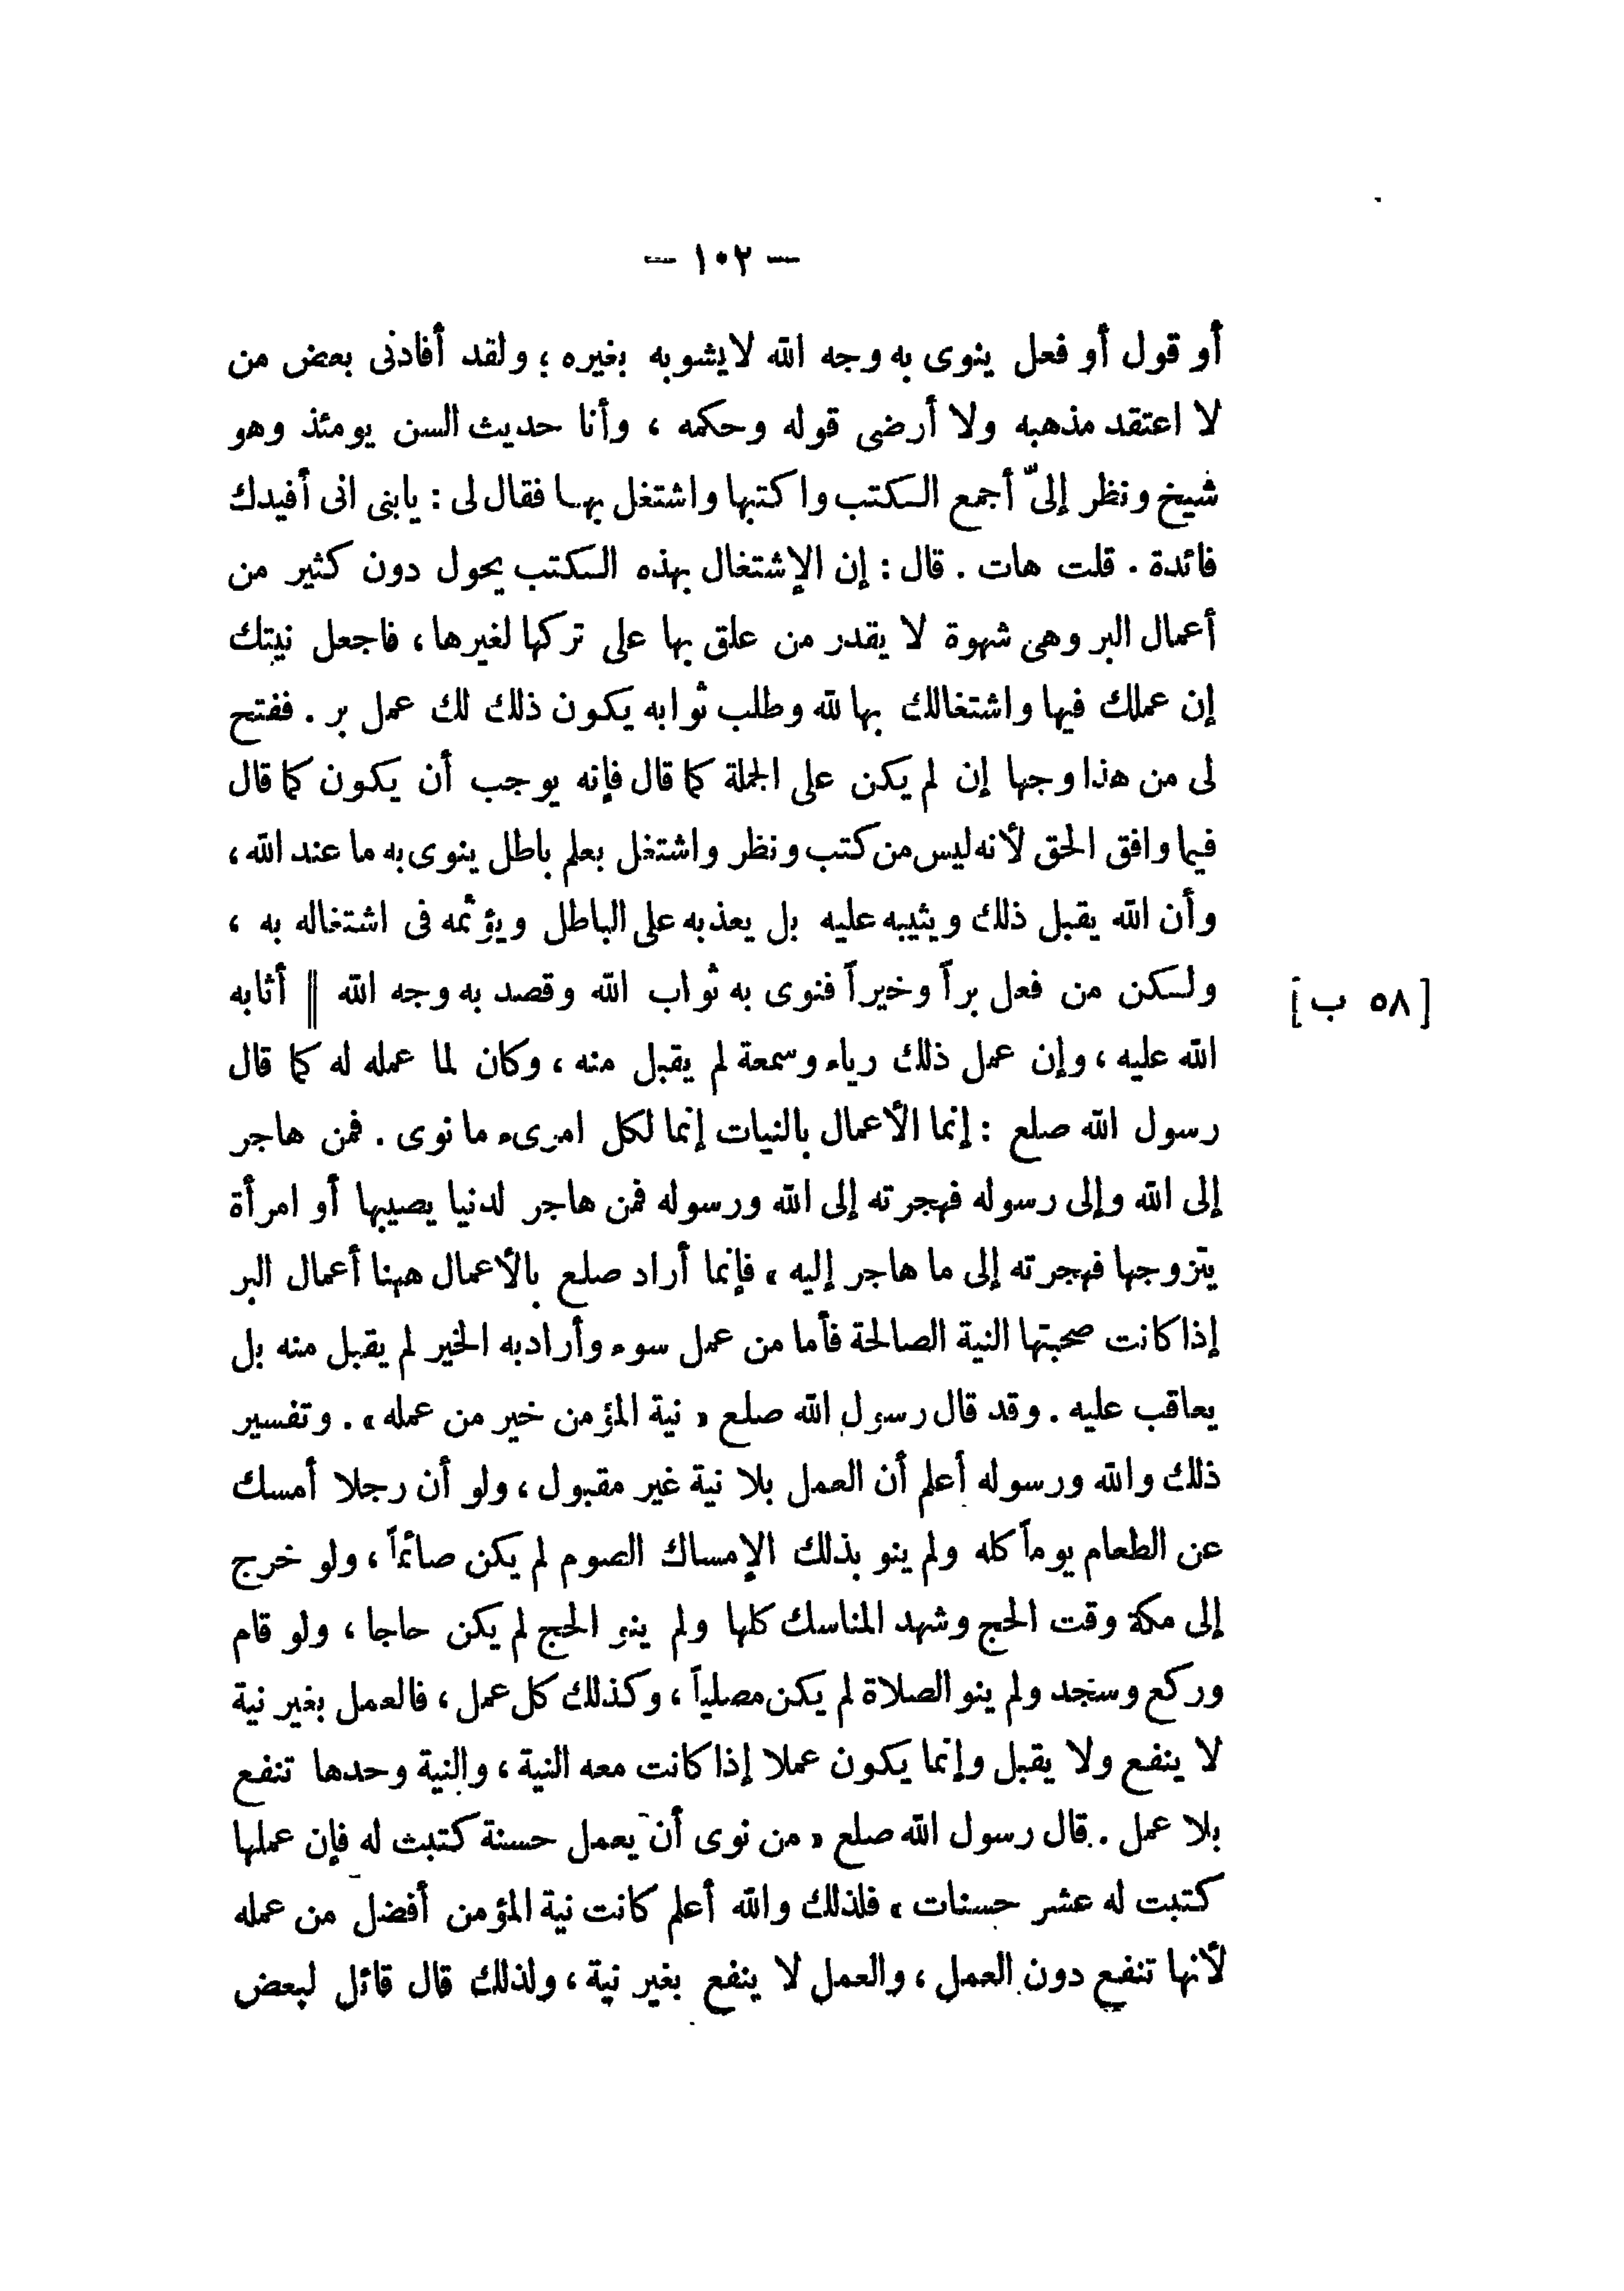 — ١٠٢ —
أو قول أو فعل ينوى به وجه الله لايشوبه بغيره ؛ ولقد أفادنى بعض من
لا اعتقد مذهبه ولا أرضى قوله وحكمه ، وأنا حديث السن يومئذ وهو
شيخ ونظر إلىّ أجمع الكتب واكتبها واشتغل بهـا فقال لى : يابنى انى أفيدك
فائدة . قلت هات . قال : إن الإشتغال بهذه الكتب يحول دون كثير من
أعمال البر وهى شهوة لا يقدر من علق بها على تركها لغيرها ، فاجعل نيتك
إن عملك فيها واشتغالك بها لله وطلب ثوابه يكون ذلك لك عمل بر . ففتح
لى من هذا وجها إن لم يكن على الجملة كما قال فإنه يوجب أن يكون كما قال
فيما وافق الحق لأنه ليس من كتب ونظر واشتغل بعلم باطل ينوى به ما عند الله ،
وأن الله يقبل ذلك ويثيبه عليه بل يعذبه على الباطل ويؤثمه فى اشتغاله به ،
ولكن من فعل براً وخيراً فنوى به ثواب الله وقصد به وجه الله || أثابه
[ ٥٨ ب ]
الله عليه ، وإن عمل ذلك رياء وسمعة لم يقبل منه ، وكان لما عمله له كما قال
رسول الله صلع : إنما الأعمال بالنيات إنما لكل امرىء ما نوى . فمن هاجر
إلى الله وإلى رسوله فهجرته إلى الله ورسوله فمن هاجر لدنيا يصيبها أو امرأة
يتزوجها فهجرته إلى ما هاجر إليه » فإنما أراد صلع بالأعمال ههنا أعمال البر
إذا كانت صحبتها النية الصالحة فأما من عمل سوء وأراد به الخير لم يقبل منه بل
يعاقب عليه . وقد قال رسول الله صلع « نية المؤمن خير من عمله » . وتفسير
ذلك والله ورسوله أعلم أن العمل بلا نية غير مقبول ، ولو أن رجلا أمسك
عن الطعام يوماً كله ولم ينو بذلك الإمساك الصوم لم يكن صائماً ، ولو خرج
إلى مكة وقت الحج وشهد المناسك كلها ولم ينو الحج لم يكن حاجا ، ولو قام
وركع وسجد ولم ينو الصلاة لم يكن مصلياً ، وكذلك كل عمل ، فالعمل بغير نية
لا ينفع ولا يقبل وإنما يكون عملا إذا كانت معه النية ، والنية وحدها تنفع
بلا عمل . قال رسول الله صلع « من نوى أن يعمل حسنة كتبت له فإن عملها
كتبت له عشر حسنات » فلذلك والله أعلم كانت نية المؤمن أفضل من عمله
لأنها تنفع دون العمل ، والعمل لا ينفع بغير نية ، ولذلك قال قائل لبعض